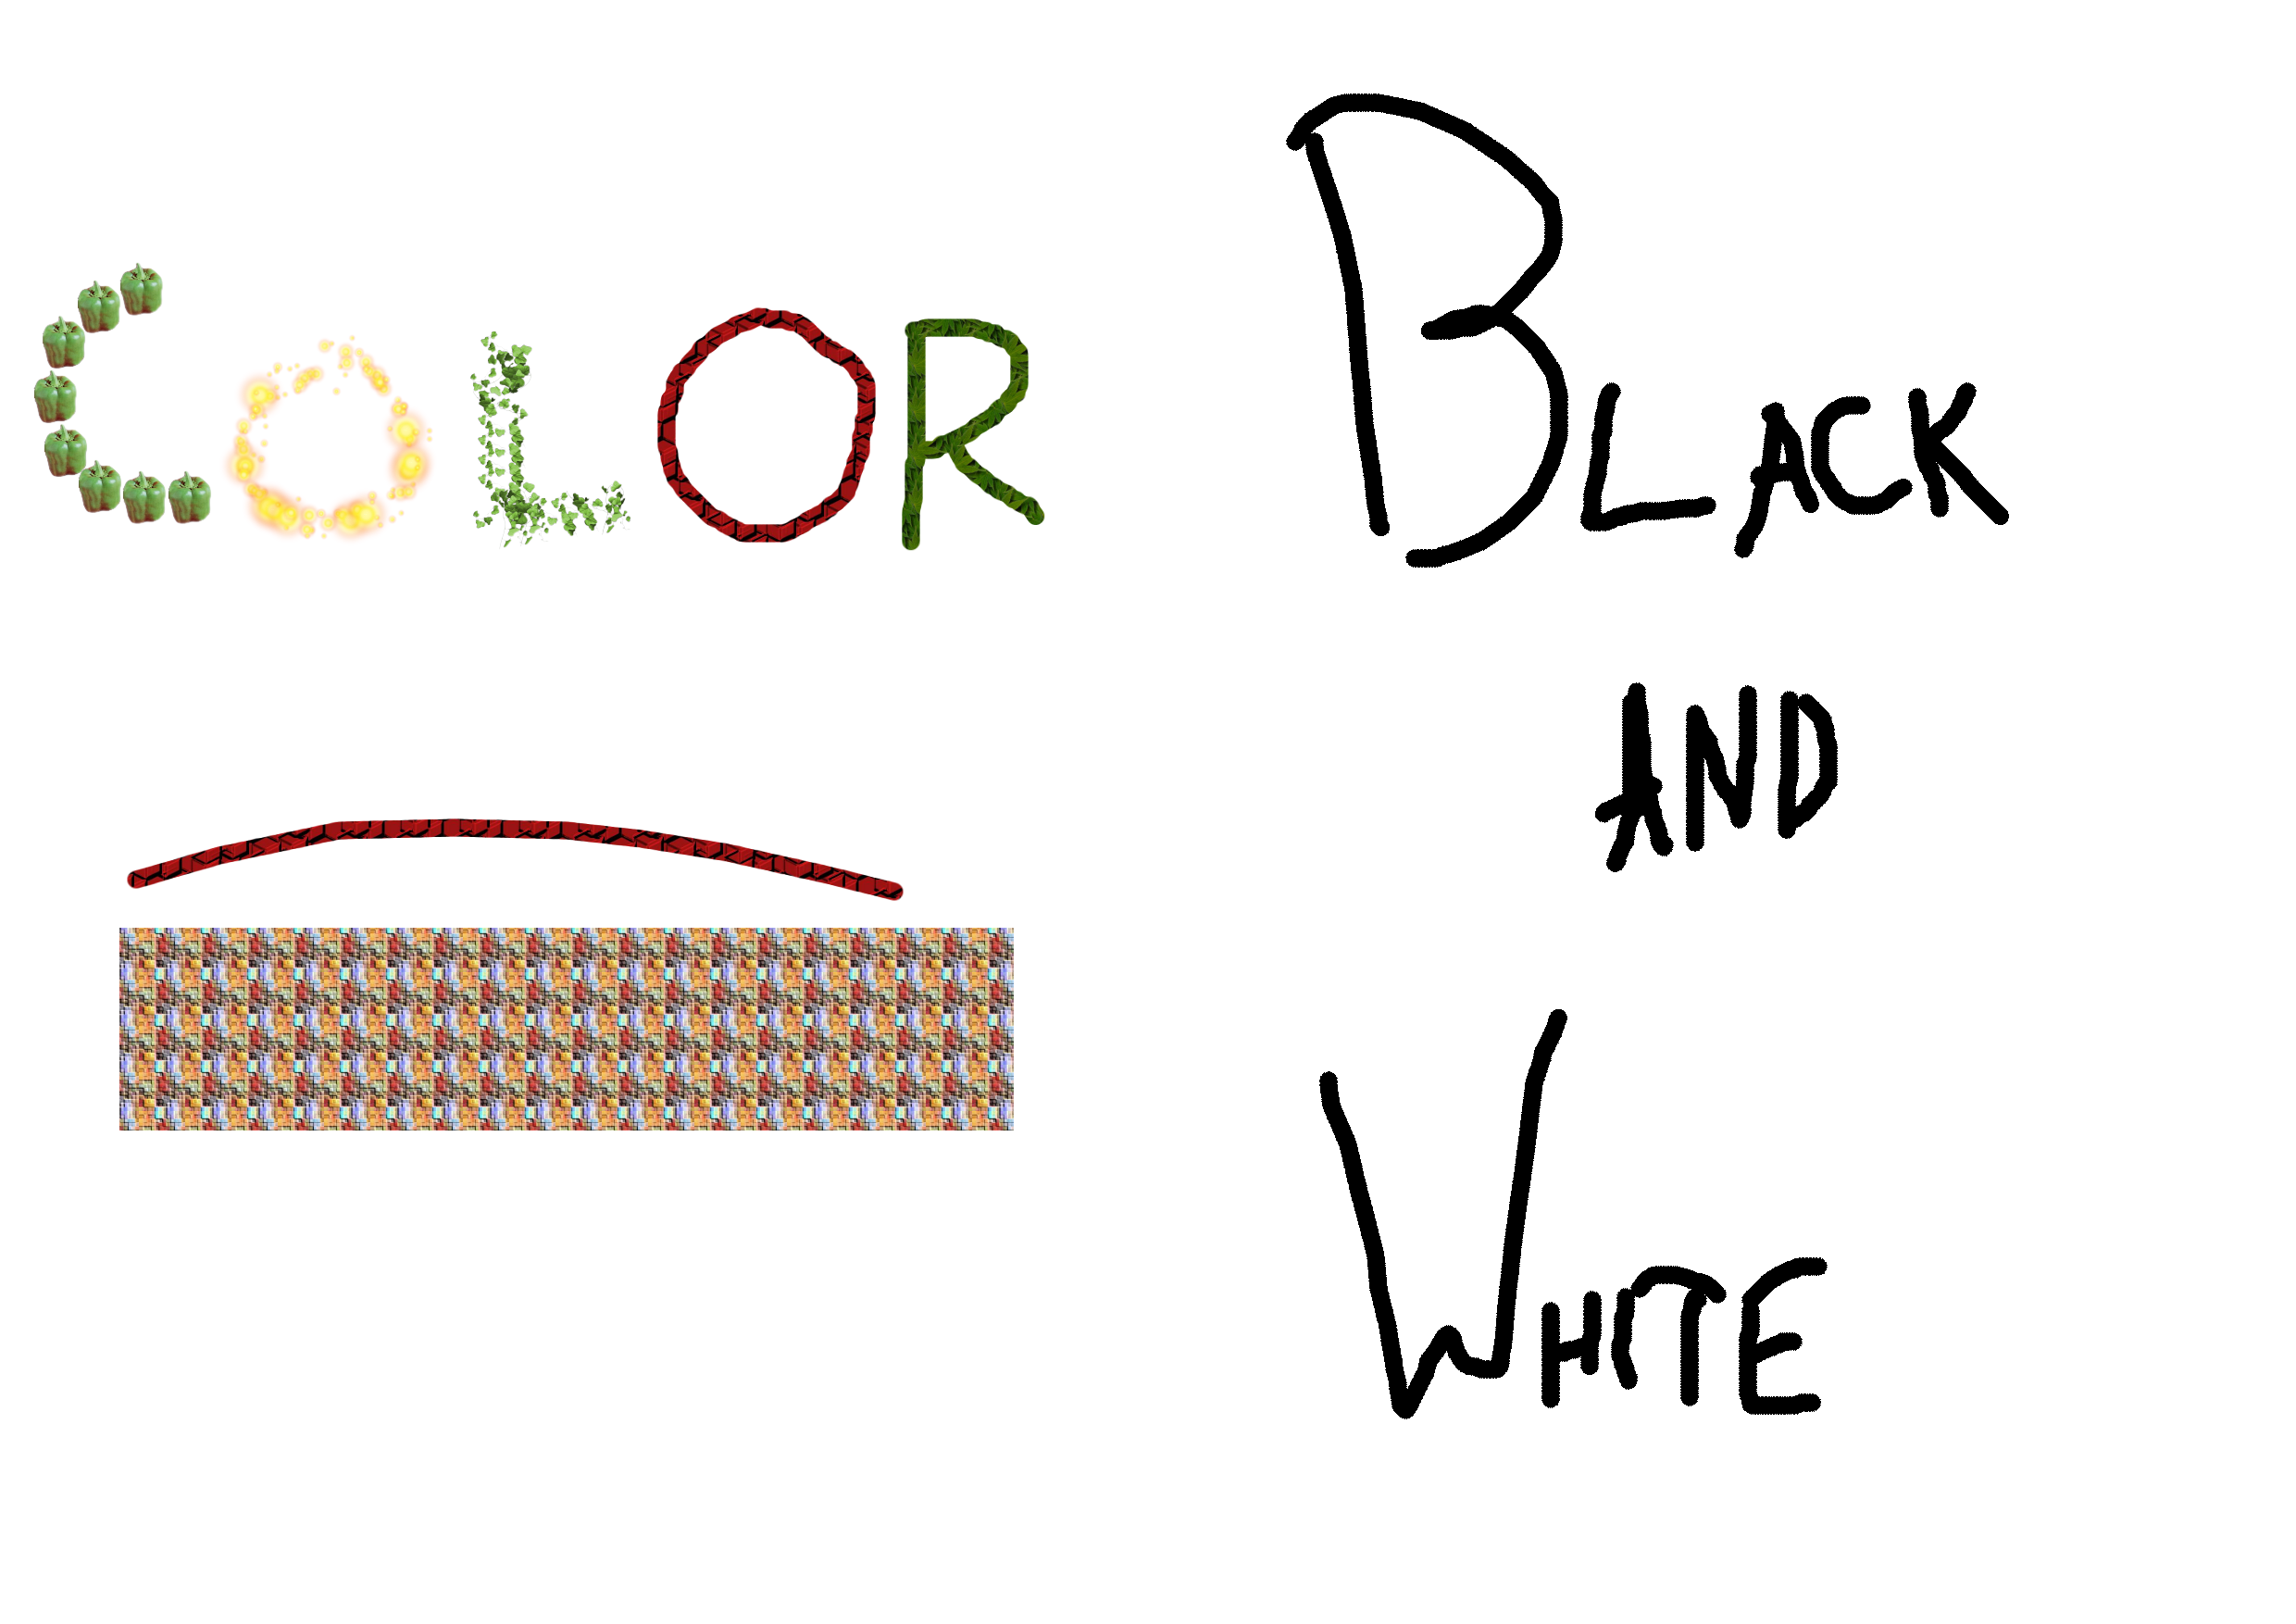 COLOR
BLACK
AND
WHITE